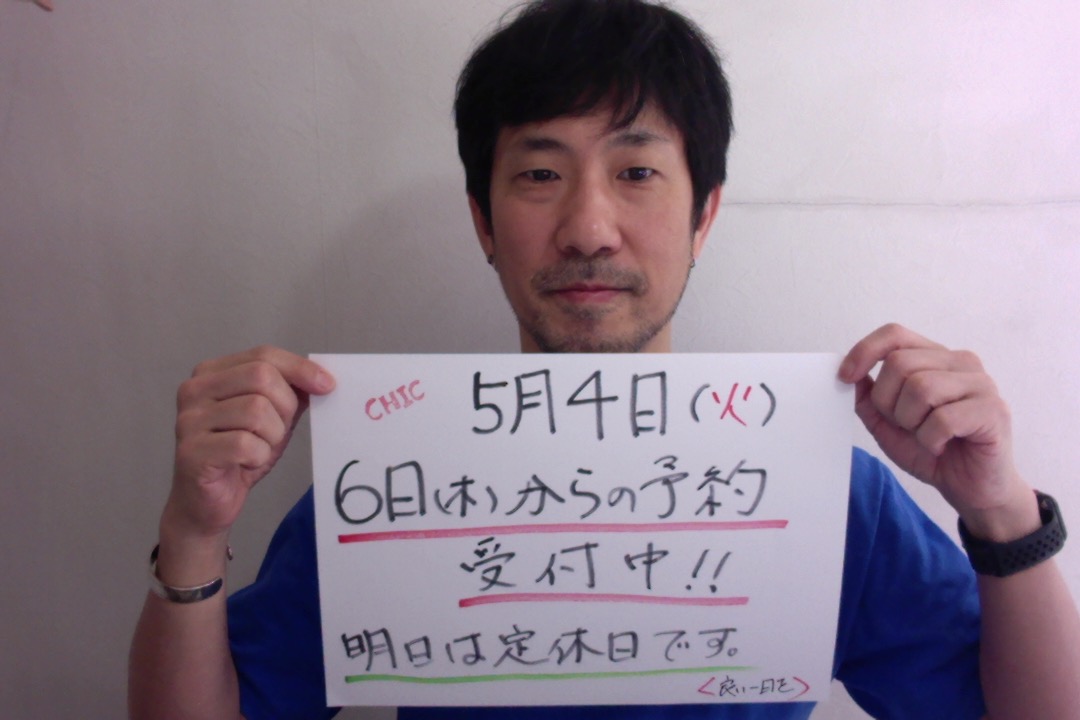 CHIC 5月4日(火)
6日(木)からの予約
受付中!!
明日は定休日です。
<良い一日を>